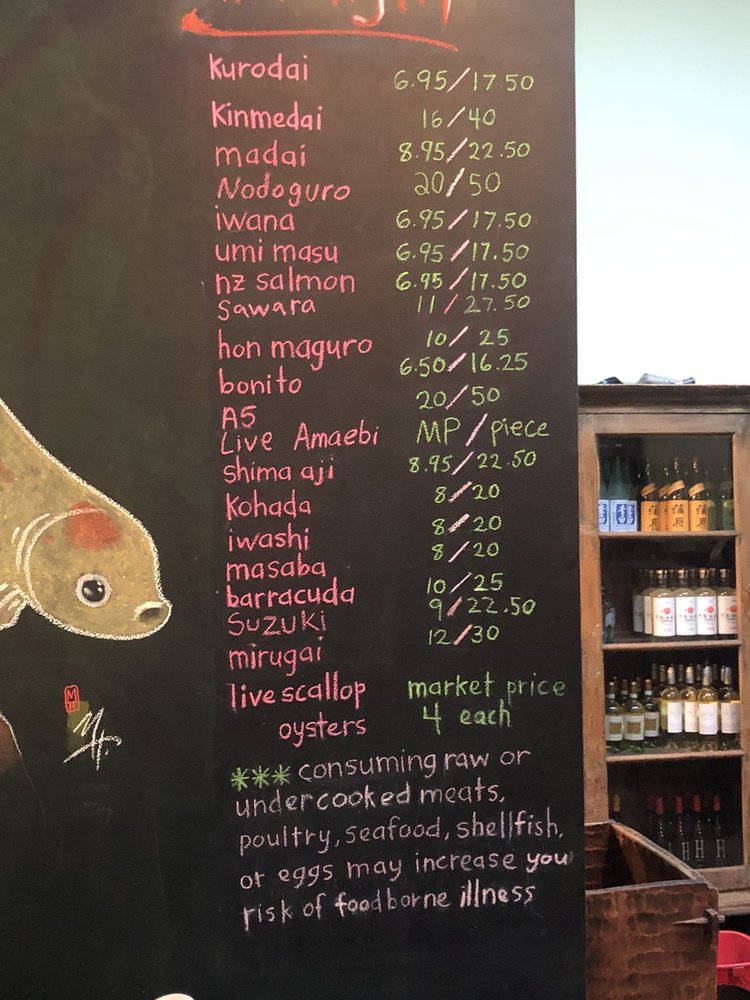 Kurodai 6.95/17.50
Kinmedai 16/40
madai 8.95/22.50
Nodoguro 20/50
iwana 6.95/17.50
umi masu 6.95/17.50
nz salmon 6.95/17.50
Sawara 11/27.50
hon maguro 10/25
bonito 6.50/16.25
A5 20/50
Live Amaebi MP/piece
shima aji 8.95/22.50
kohada 8/20
iwashi 8/20
masaba 8/20
barracuda 10/25
Suzuki 9/22.50
mirugai 12/30
live scallop market price
oysters 4 each
*** consuming raw or
undercooked meats,
poultry, seafood, shellfish,
or eggs may increase you
risk of foodborne illness